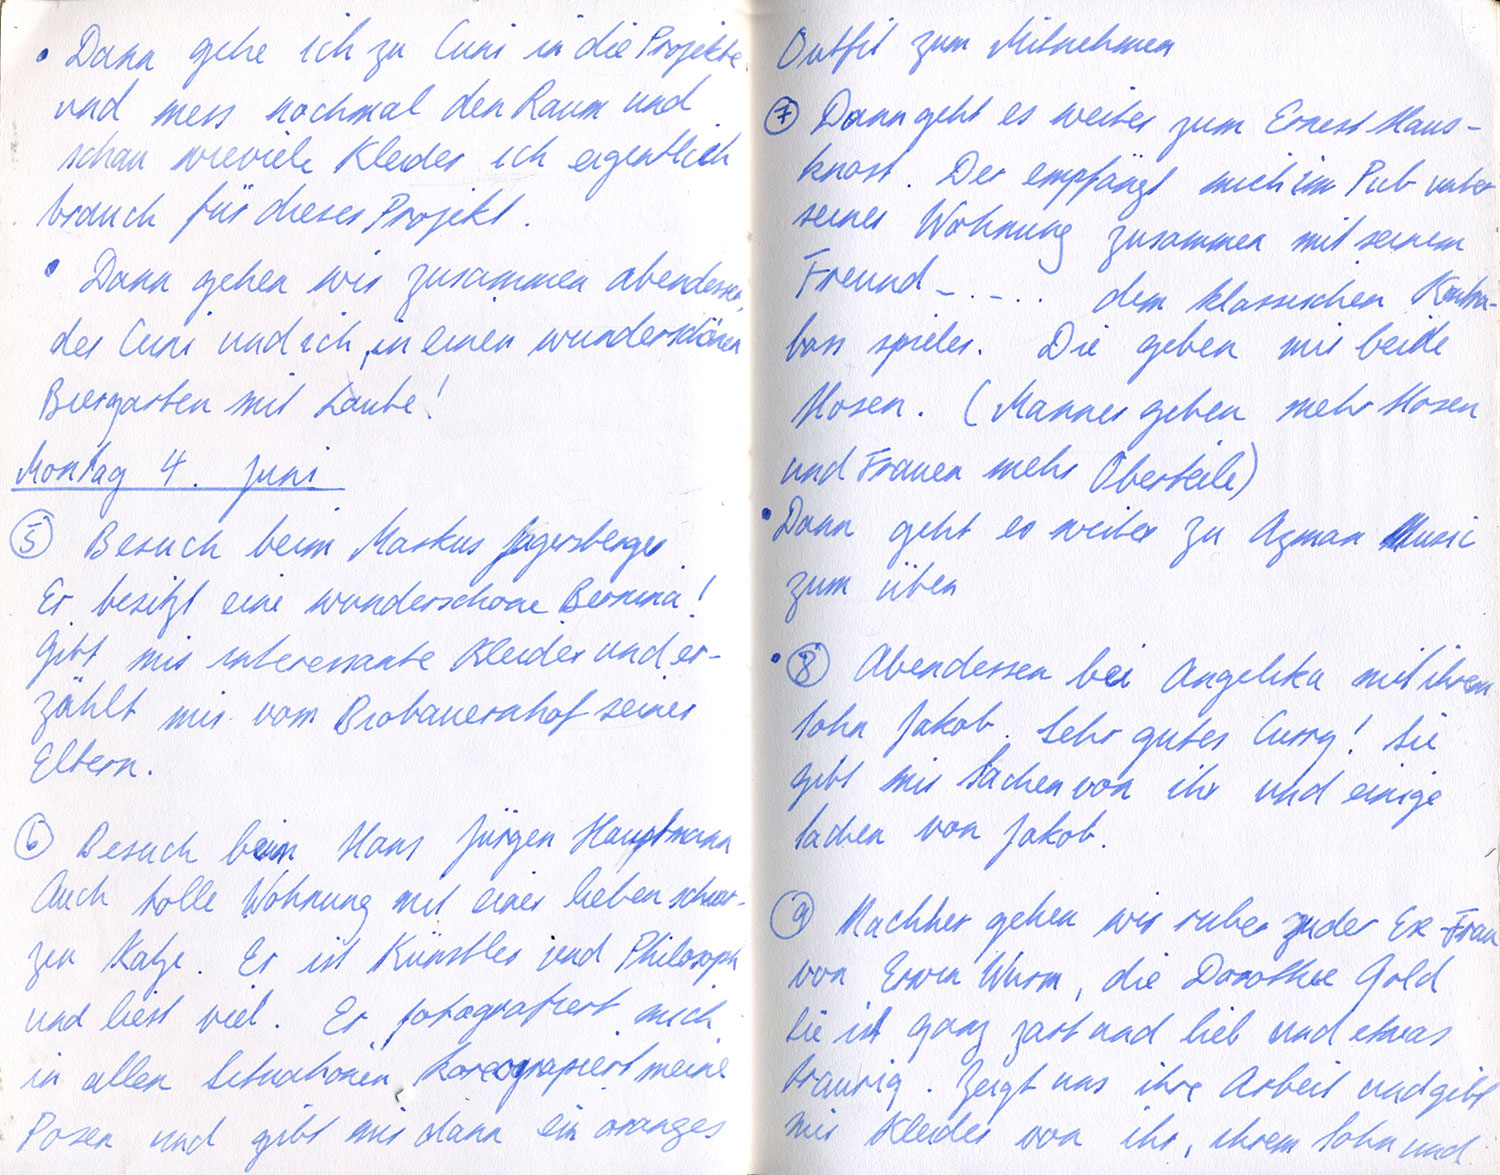 • Dann gehe ich zu Cuni in die Projekte
und mess nochmal den Raum und
schau wieviele Kleider ich eigentlich
brauch für dieses Projekt.
• Dann gehen wir zusammen abendessen,
der Cuni und ich, in einen wunderschönen
Biergarten mit Laube!
Montag 4. Juni
5 Besuch beim Markus Jagersberger
Er besitzt eine wunderschöne Bernina!
Gibt mir interessante Kleider und er-
zählt mir vom Biobauernhof seiner
Eltern.
6 Besuch beim Hans Jürgen Hauptmann
Auch tolle Wohnung mit einer lieben schwar-
zen Katze. Er ist Künstler und Philosoph
und liest viel. Er fotografiert mich
in allen Situationen, koreograpiert meine
Posen und gibt mir dann ein oranges
Outfit zum Mitnehmen
7 Dann geht es weiter zum Ernest Haus-
knost. Der empfängt mich im Pub unter
seiner Wohnung zusammen mit seinem
Freund - . - . . dem klassischen Kontra-
bass spieler. Die geben mir beide
Hosen. (Männer geben mehr Hosen
und Frauen mehr Oberteile)
• Dann geht es weiter zu Azman Music
zum üben
• 8 Abendessen bei Angelika mit ihrem
Sohn Jakob. Sehr gutes Curry! Sie
gibt mir Sachen von ihr und einige
Sachen von Jakob.
9 Nachher gehen wir rüber zu der Ex-Frau
von Erwin Wurm, die Dorothee Gold
Sie ist ganz zart und lieb und etwas
traurig. Zeigt uns ihre Arbeit und gibt
mir Kleider von ihr, ihrem Sohn und